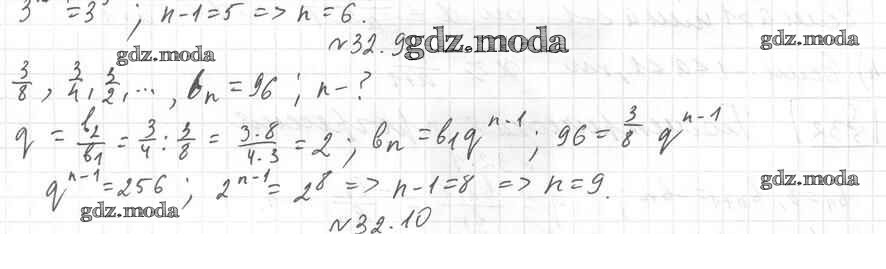 = 3⁵ ; n-1=5 => n=6.
№32.9 gdz.moda gdz.moda
gdz.moda
3/8 , 3/4 , 3/2 , ... , bₙ = 96 ; n - ?
q = b₂/b₁ = 3/4 : 3/8 = 3·8/4·3 = 2 ; bₙ = b₁qⁿ⁻¹ ; 96 = 3/8 qⁿ⁻¹
qⁿ⁻¹ = 256 ; 2ⁿ⁻¹ = 2⁸ => n-1=8 => n=9. gdz.moda
gdz.moda
№32.10